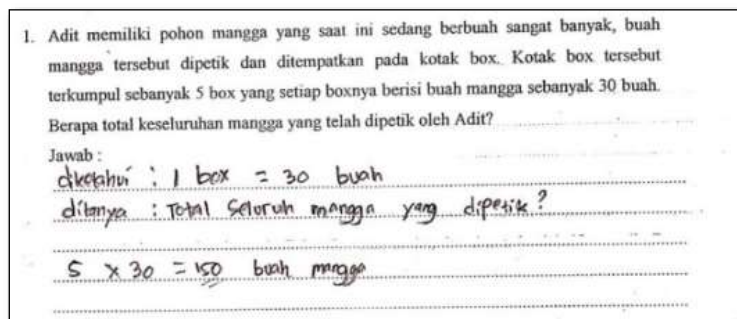 1. Adit memiliki pohon mangga yang saat ini sedang berbuah sangat banyak, buah
mangga tersebut dipetik dan ditempatkan pada kotak box. Kotak box tersebut
terkumpul sebanyak 5 box yang setiap boxnya berisi buah mangga sebanyak 30 buah.
Berapa total keseluruhan mangga yang telah dipetik oleh Adit?
Jawab :
diketahui : 1 box = 30 buah
ditanya : Total seluruh mangga yang dipetik?
5 x 30 = 150 buah mangga